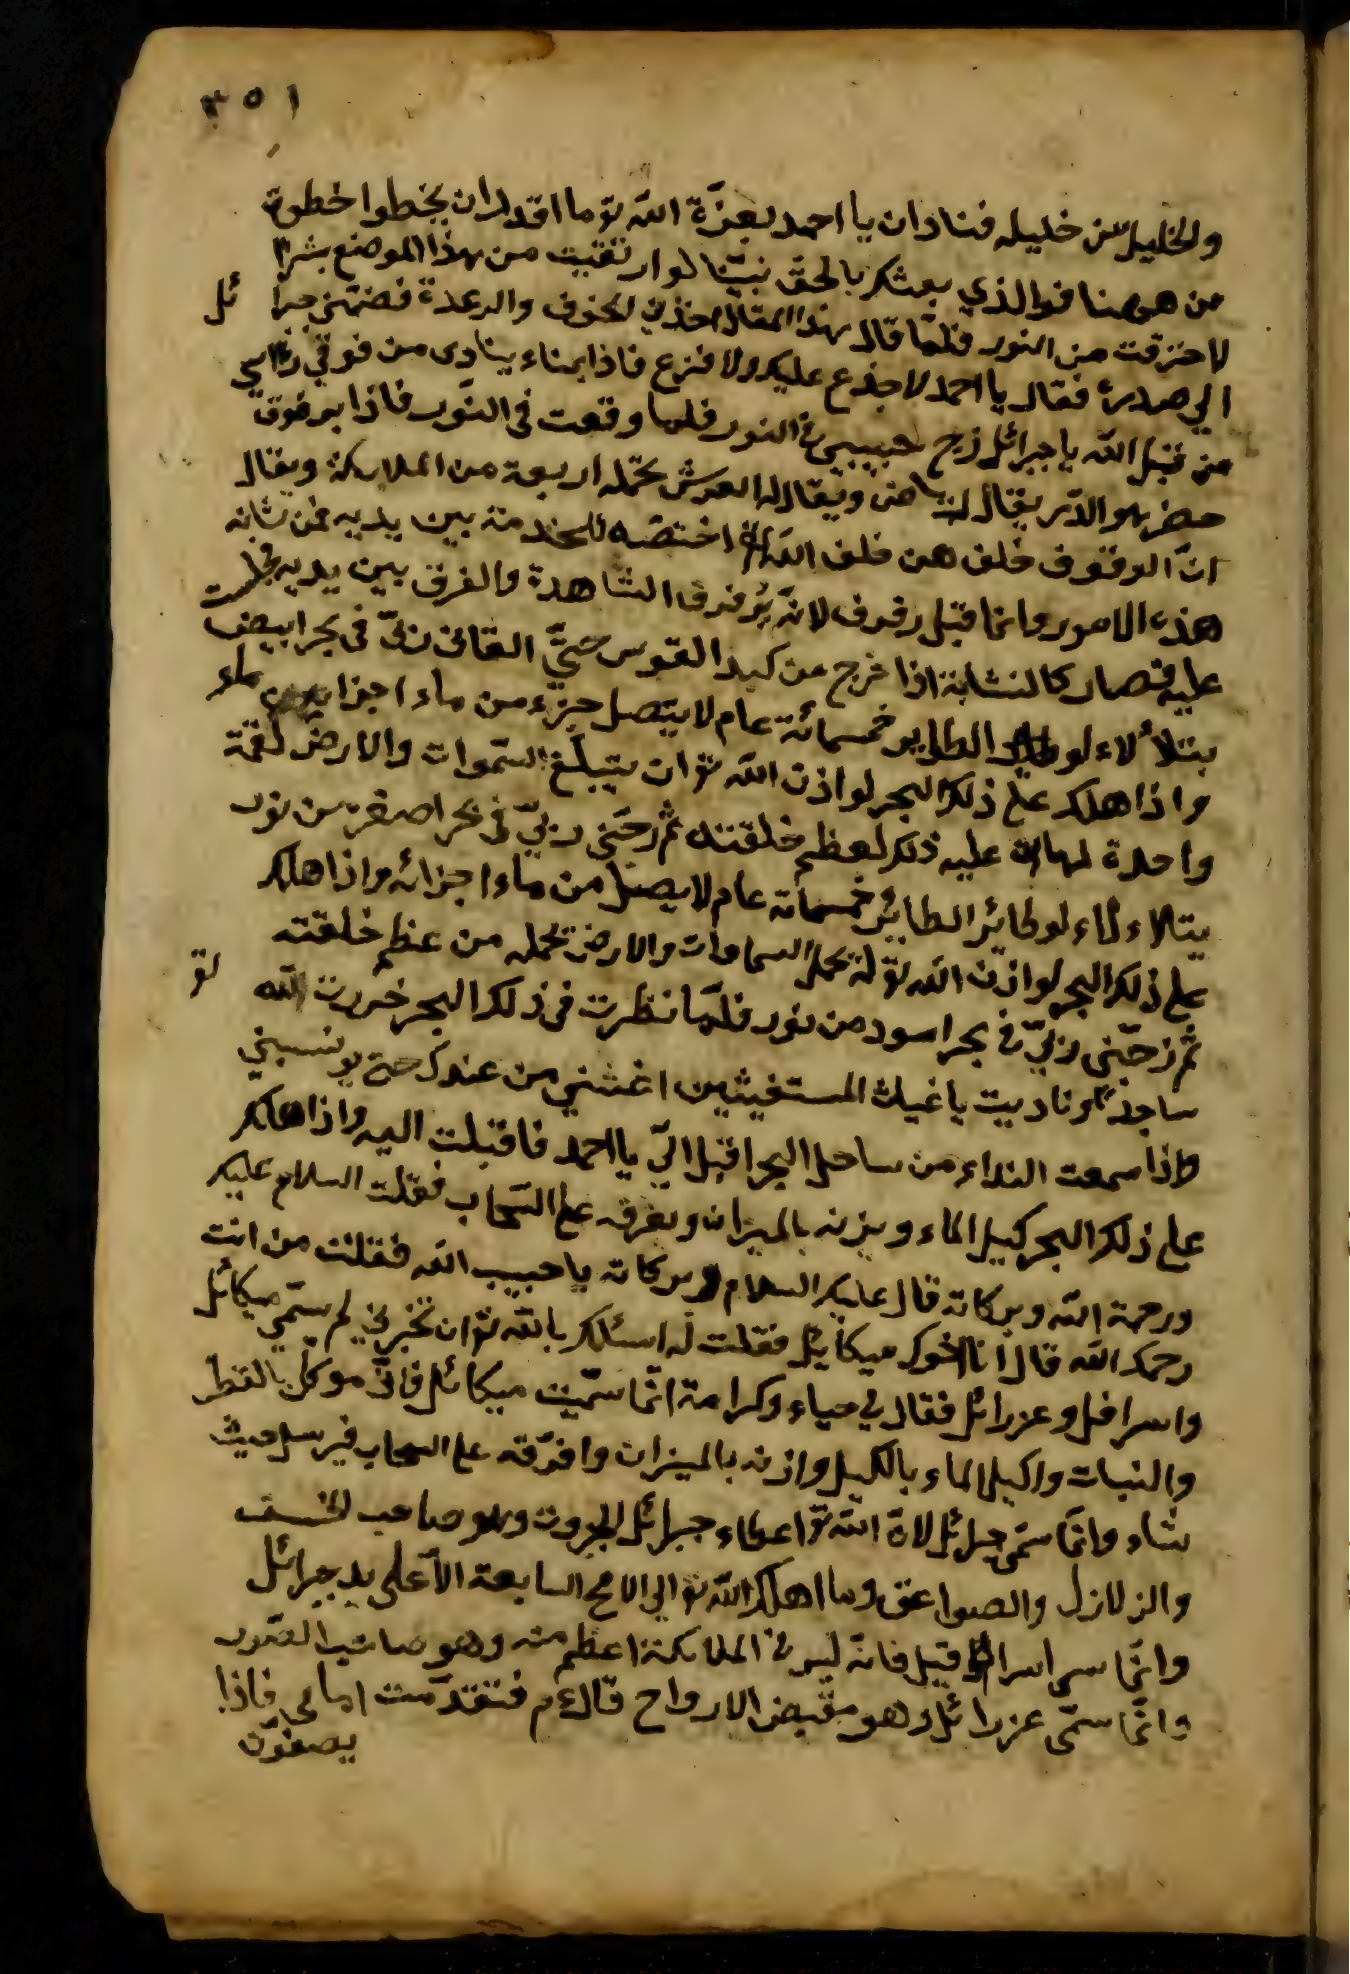 ١٥٣
والخليل عن خليله فنادان يا احمد بعزّة الله تؤ ما اقدر ان يخطوا خطوة
من ههنا فوالذي بعثكر بالحقّ نبيّنا لو ارتقيت من هذا الموضع بشرا
لاحترقت من النور فلمّا قال بهذا المقال اخذني الخوف والرعدة فضمّني جبرا ئل
الي صدره فقال يا احمد لا جذع عليكر ولا فزع فاذا بمناء ينادى من فوقي راسي
من قبل الله يا جبرائل زج حبيبي في النور فلما وقعت في النوّر فاذا برفوق
خضر هو الدّر يقال له ويقال له العرش تحمّله اربعة من الملائكة ويقال
انّ الوقوف خلق من خلق الله اختصّه للخدمة بين يديه فمن شانه
هذه الامور وانما قيل رفرف لانّه يرفرف الشاهدة والفرق بين يديه فجلست
عليه فصار كالنشابة اذا خرج عن كبد القوس حتيّ القانى ربّي في بحر ابيض
يتلألاء لو الطاير خمسمائة عام لا يتصل جزء من ماء اجزا ماء
واذا هلكر على ذلكر البحر لو اذن الله تؤ ان يتبلّغ السّموات والارض لقمة
واحدة لهان عليه ذكر لعظم خلقته ثم زخّني ربيّ في بحر اصفر من نور
يتلالاء لو طائر الطائر خمسمأة عام لا يصل من ماء اجزائه واذا هلكر
على ذلكر البحر لو اذن الله تؤ له تحمل السماوات والارض تحمله من عظم خلقته
ثم زخّني ربّي في بحر اسود من نور فلمّا نظرت في ذلكر البحر خررت لله تؤ
ساجدا وناديت يا غياث المستغيثين اغثني من عندكر حتي يونسيني
فاذا سمعت النداء من ساحل البحر اقبل اليّ يا احمد فاقبلت اليه واذا هلكر
على ذلكر البحر كيل الماء ويزنه بالميزان ويفرقه على السّحاب فقلت السلام عليكر
ورحمة الله وبركاته قال عليكر السلام وبركاته يا حبيب الله فقلت من انت
رحمكر الله قال انا اخوكر ميكائيل فقلت له اسئلكر بالله تؤ ان تخبرني لم سمّي ميكائل
واسرافل وعزرائل فقال لي حياء وكرامة انّما سمّيت ميكائل فانّي موكل بالقطر
والنبات واكيل الماء بالكيل وازنه بالميزان وافرّقه على السحاب فيرسل حيث
يشاء وانّما سمّى جبرائل لانّ الله تؤ اعطاء جبرائل الجبروت وهو صاحب الخسف
والزلازل والصواعق وما اهلكر الله تؤ الي الامم السابعة الّا على يد جبرائل
وانّما سمى اسرا فيل فانّه ليس في الملائكة اعظم منه وهو صاحب الصّور
وانّما سمّى عزرائل وهو مقبض الارواح قال ءم فتقدّمت امامي فاذا
يصفوّن